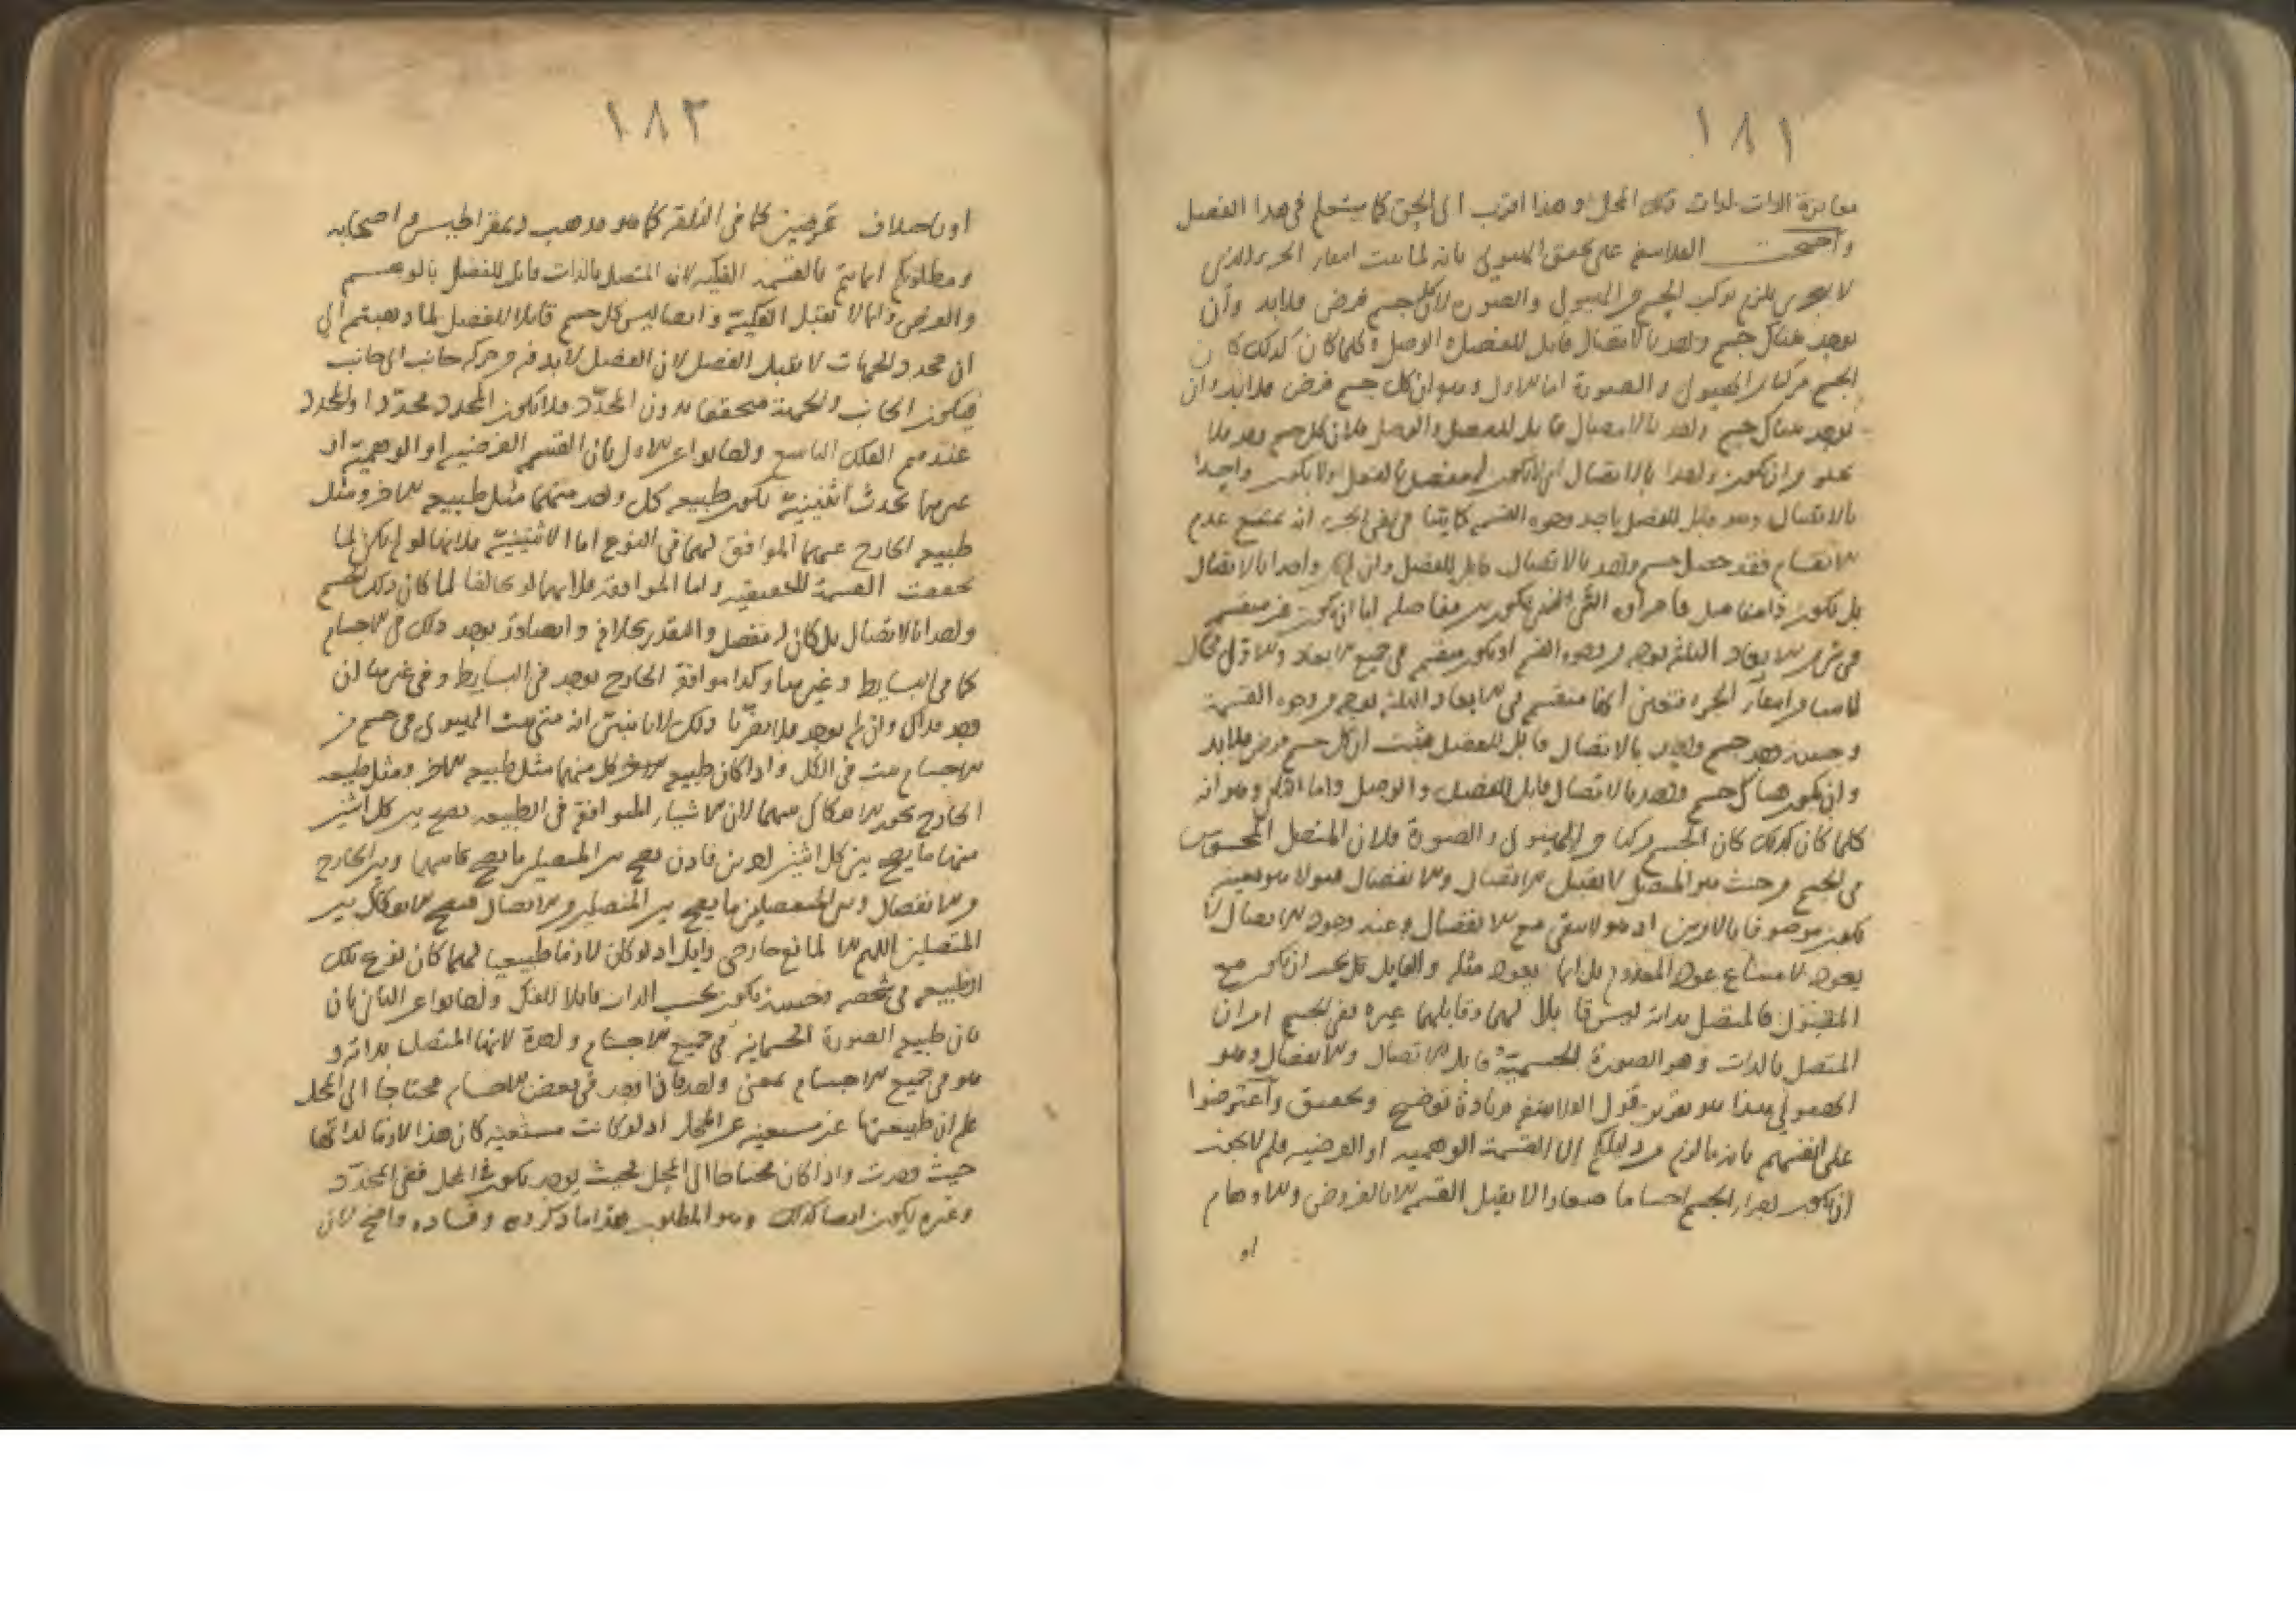 ١٨١
مغايرة الذات لذات تلك المحل وهذا اقرب الى الحق كما ستعلم فى هذا الفصل
واحتجت الفلاسفة على تحقق الهيولى بانه لما ثبت امتناع الجزء الذى
لا يتجزى يلزم تركب الجسم من الهيولى والصورة لان كل جسم فرض فلابد وأن
يوجد هناك جسم واحد بالاتصال قابل للفصل والوصل وكلما كان كذلك كان
الجسم مركبا من الهيولى والصورة اما الاول وهو ان كل جسم فرض فلابد وان
يوجد هناك جسم واحد بالاتصال قابل للفصل والوصل فلان كل جسم وجد فلا
يخلو من ان يكون واحدا بالاتصال اى لا يكون له مفصل بالفعل او لا يكون واحدا
بالاتصال وهو قابل للفصل باحد وجوه القسمة كما بينا فى نفى الجزء انه يمتنع عدم
الانقسام فقد حصل جسم واحد بالاتصال قابل للفصل وان لم يكن واحدا بالاتصال
بل يكون ذا مفاصل فاجزاؤه التى تكون بين مفاصله اما ان يكون غير منقسم
فى شى من الابعاد الثلثة بوجه من وجوه القسمة او يكون منقسم فى جميع الابعاد والاول محال
لما مر من امتناع الجزء فتعين انها منقسم فى الابعاد الثلثة بوجه من وجوه القسمة
وحينئذ وجد جسم واحد بالاتصال قابل للفصل فثبت ان كل جسم فرض فلابد
وان يكون هناك جسم واحد بالاتصال قابل للفصل والوصل واما الثانى وهو انه
كلما كان كذلك كان الجسم مركبا من الهيولى والصورة فلان المتصل المحسوس
فى الجسم من حيث هو المتصل لا يقبل الاتصال والانفصال قبولا هو بعينه
يكون موصوفا بالامرين اذ هو لا يبقى مع الانفصال وعند وجود الاتصال لا
يعود لامتناع عود المعدوم بل انما يعود مثله والقابل كل يجب ان يكون مع
المقبول فالمتصل بذاته ليس قابلا لهما وقابلهما غيره ففى الجسم امران
المتصل بالذات وهو الصورة الجسمية وقابل الاتصال والانفصال وهو
الهيولى هذا هو تقرير قول الفلاسفة مع زيادة توضيح وتحقيق واعترضوا
على انفسهم بانه ما لزم من دليلكم الا القسمة الوهمية او الفرضية فلم لا يجوز
ان يكون اجزاء الجسم اجساما صغارا لا يقبل القسمة الا بالفروض والاوهام
او
١٨٢
او باختلاف عرضين كما فى البلقة كما هو مذهب ديمقراطيس واصحابه
ومطلوبكم انما يتم بالقسمة الفكية لان المتصل بالذات قابل للفصل بالوهم
والفرض وانما لا تقبل الفكية وايضا ليس كل جسم قابلا للفصل لما ذهبتم الى
ان محدد الجهات لا يقبل الفصل لان الفصل لابد فيه من حركة جانب الى جانب
فيكون الجانب والجهة متحققا بدون المحدّد فلا يكون المحدد محدّدا والمحدد
عندهم الفلك التاسع واجابوا عن الاول بان القسمة الفرضية او الوهمية او
غيرها تحدث اثنينية تكون طبيعة كل واحد منهما مثل طبيعة الاخر ومثل
طبيعة الخارج عنهما الموافق لهما فى النوع اما الاثنينية فلانها لو لم يكن لما
تحققت القسمة الحقيقية واما الموافقة فلانهما لو تخالفا لما كان ذلك الجسم
واحدا بالاتصال بل كان له مفصل والمقدر بخلافه وايضا قد يوجد ذلك فى الاجسام
كما فى البسايط وغيرها وكذا موافقة الخارج يوجد فى البسايط وفى غيرها ان
وجد فذاك وان لم يوجد فلا يضرّنا ذلك لانا نبين انه متى ثبت الهيولى فى جسم من
الاجسام ثبت فى الكل واذا كان طبيعة كل منهما مثل طبيعة الاخر ومثل طبيعة
الخارج يجوز الانفكاك بينهما لان الاشياء المتوافقة فى الطبيعة يصح بين كل اثنين
منها ما يصح بين كل اثنين اخرين فاذن يصح بين المتصلين ما يصح بينهما وبين الخارج
من الانفصال وبين المنفصلين ما يصح بين المتصلين من الاتصال فيصح الانفكاك بين
المتصلين اللهم الا لمانع خارجى زايل اذ لو كان لازما طبيعيا لهما كان نوع تلك
الطبيعة فى شخصه وحينئذ يكون بحسب الذات قابلا للفك واجابوا عن الثانى بان
بان طبيعة الصورة الجسمانية فى جميع الاجسام واحدة لانها المتصل بذاته و
هو فى جميع الاجسام بمعنى واحد فاذا وجد فى بعض الاجسام محتاجا الى المحل
علم ان طبيعتها غير مستغنية عن المحل اذ لو كانت مستغنية كان هذا لازما لذاتها
حيث وجدت واذا كان محتاجا الى المحل فحيث يوجد يكون فى المحل ففى المحدّد
وغيره يكون ايضا كذلك وهو المطلوب هذا ما ذكروه وفساده واضح لان